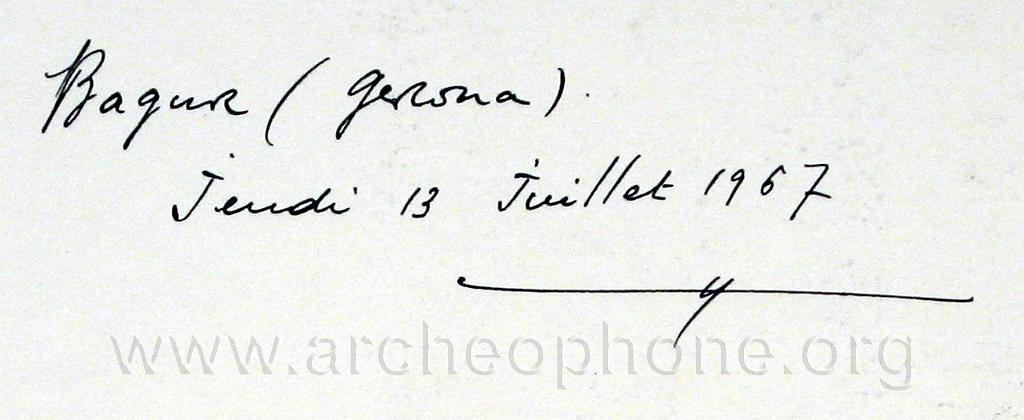 Bagur (Gerona).
Jeudi 13 Juillet 1967
www.archeophone.org